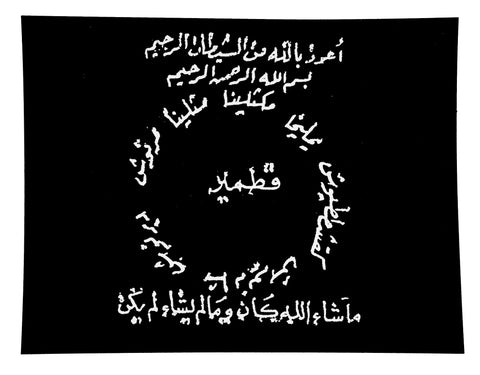 أعوذ بالله من الشيطان الرجيم
بسم الله الرحمن الرحيم
مكثلينا
مثلينا
مرنوش
يمليخا
قطمير
ما شاء الله كان وما لم يشاء لم يكن